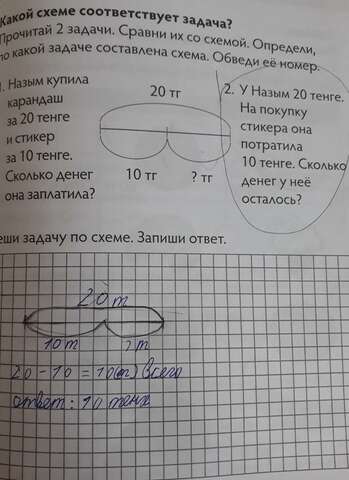 Какой схеме соответствует задача?
Прочитай 2 задачи. Сравни их со схемой. Определи,
по какой задаче составлена схема. Обведи её номер.
1. Назым купила
карандаш
за 20 тенге
и стикер
за 10 тенге.
Сколько денег
она заплатила?
20 тг
10 тг ? тг
2. У Назым 20 тенге.
На покупку
стикера она
потратила
10 тенге. Сколько
денег у неё
осталось?
еши задачу по схеме. Запиши ответ.
20 т
10 т ? т
20 - 10 = 10(т) всего
ответ: 10 тенге